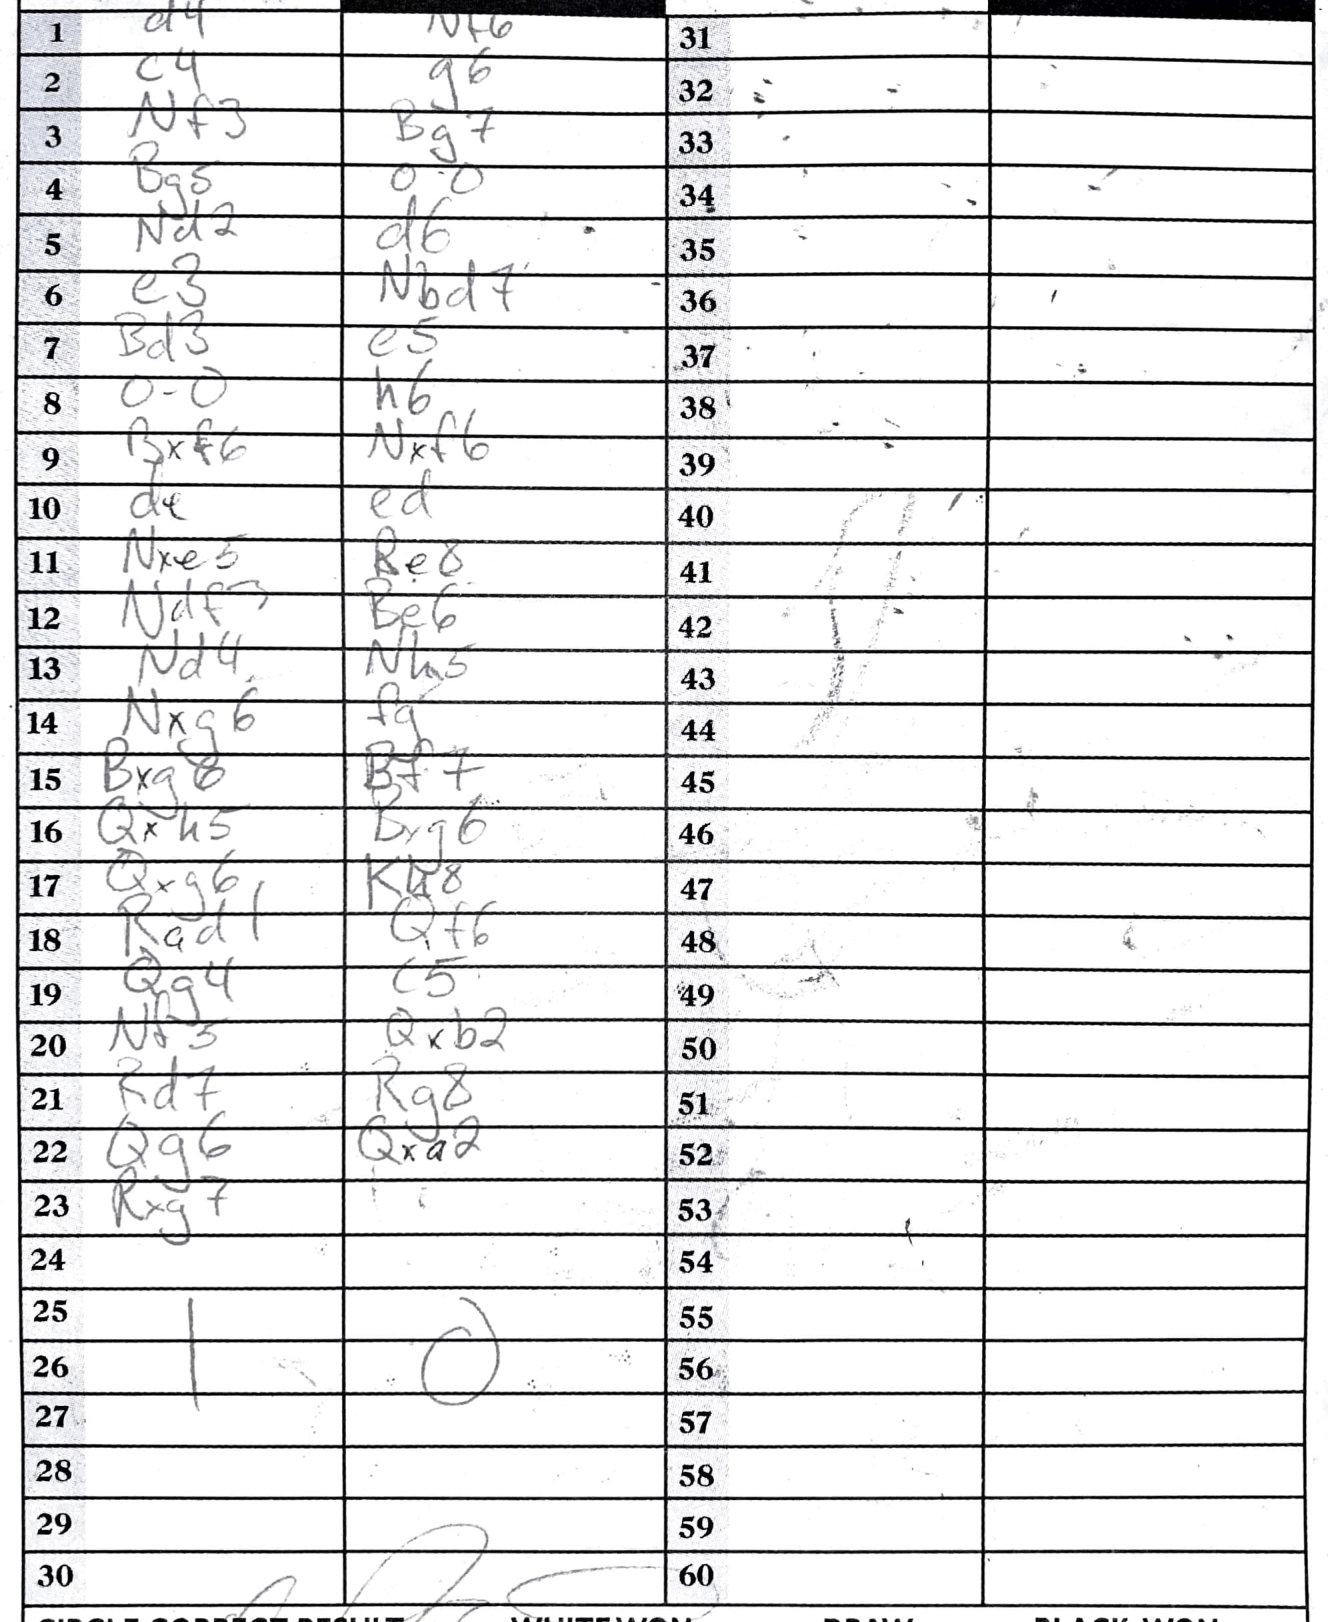 1 d4 Nf6 31
2 c4 g6 32
3 Nf3 Bg7 33
4 Bg5 0-0 34
5 Nd2 d6 35
6 e3 Nbd7 36
7 Bd3 e5 37
8 0-0 h6 38
9 Bxf6 Nxf6 39
10 de ed 40
11 Nxe5 Re8 41
12 Ndf3 Be6 42
13 Nd4 Nh5 43
14 Nxg6 fg 44
15 Bxg6 Bf7 45
16 Qxh5 Bxg6 46
17 Qxg6 Kh8 47
18 Rad1 Qf6 48
19 Qg4 c5 49
20 Nf5 Qxb2 50
21 Rd7 Rg8 51
22 Qg6 Qxa2 52
23 Rxg7 53
24 54
25 55
26 1 0 56
27 57
28 58
29 59
30 60
CIRCLE CORRECT RESULT WHITE WON DRAW BLACK WON